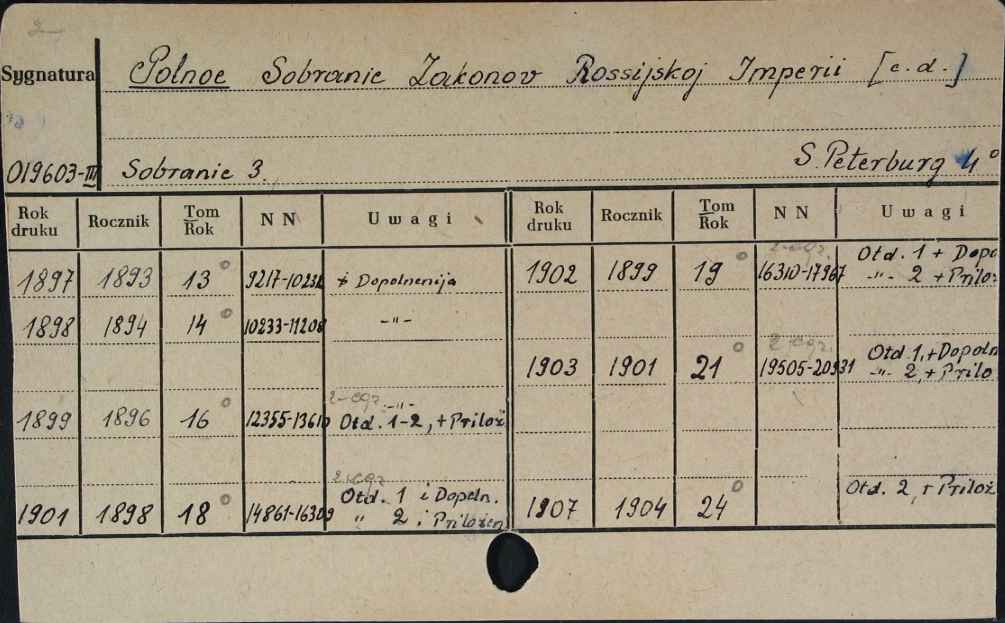 Sygnatura
Polnoe Sobranie Zakonov Rossijskoj Imperii [c.d.]
019603-III
Sobranie 3.
S. Peterburg 4°
Rok druku Rocznik Tom/Rok NN Uwagi Rok druku Rocznik Tom/Rok NN Uwagi
1897 1893 13° 9217-10232 i Dopolnenija
1898 1894 14° 10233-11208 -"-
1899 1896 16° 12355-13610 2-egz. -"-
Otd. 1-2, + Prilož
1901 1898 18° 14861-16309 2-egz.
Otd. 1 i Dopoln.
" 2 i Priložen
1902 1899 19° 2-egz. 16310-17967 Otd. 1 + Dopo
-"- 2 + Prilož
1903 1901 21° 2 egz. 19505-20931 Otd. 1, + Dopoln
-"- 2, + Prilo
1907 1904 24° Otd. 2, + Prilož